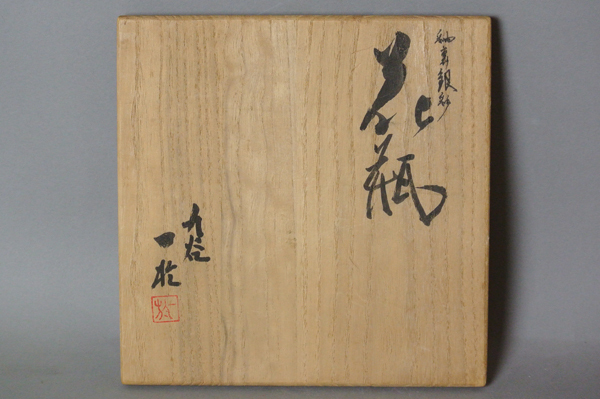 釉裏銀彩
花瓶
九谷
一於
於